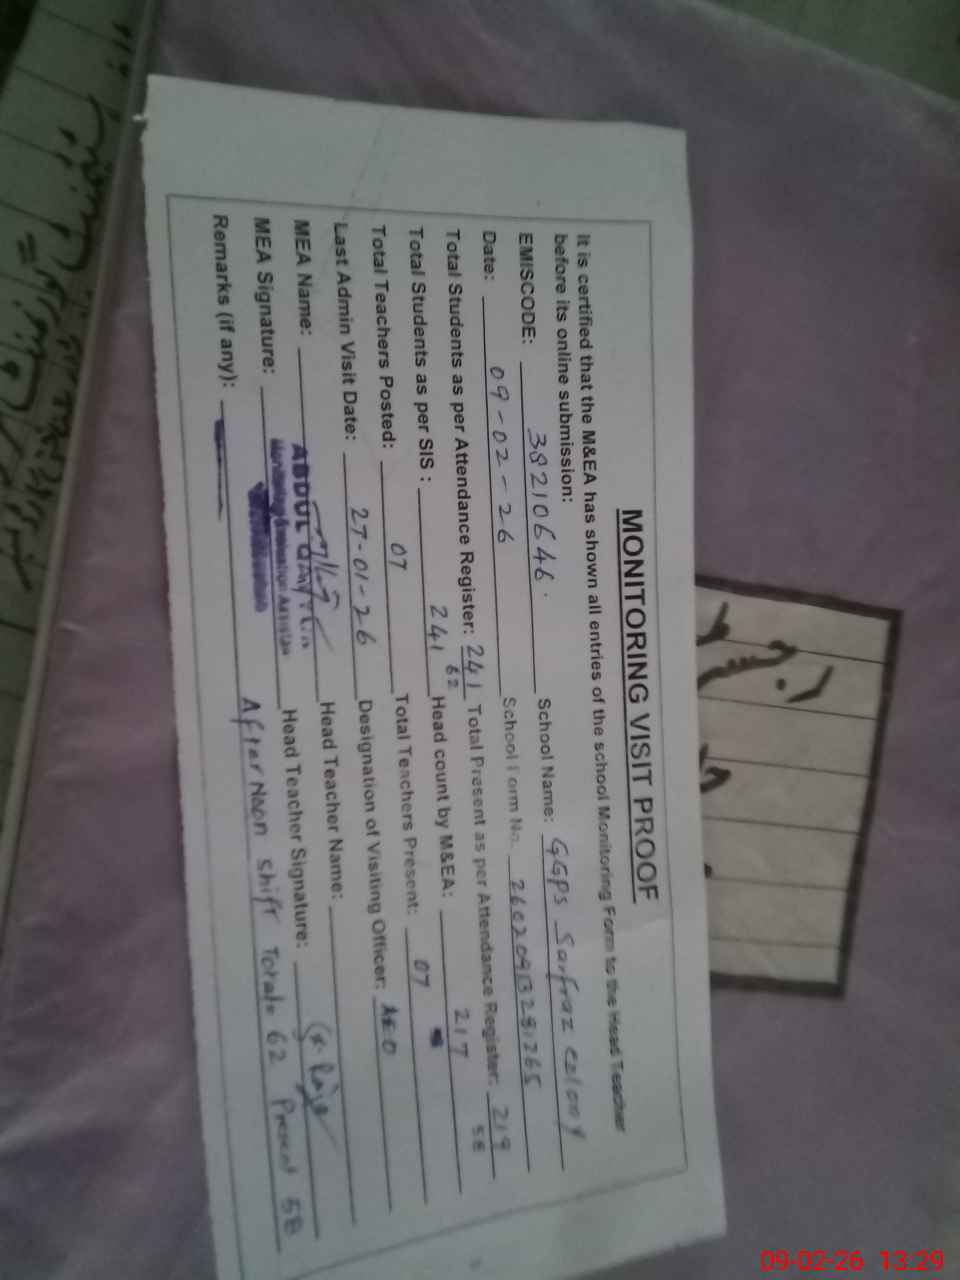 MONITORING VISIT PROOF
It is certified that the M&EA has shown all entries of the school Monitoring Form to the Head Teacher
before its online submission:
EMISCODE: 38210646. School Name: GGPS Sarfraz colony
Date: 09-02-26 School Form No. 26020913281265
Total Students as per Attendance Register: 241 Total Present as per Attendance Register: 219
62 58
Total Students as per SIS: 241 Head count by M&EA: 217
Total Teachers Posted: 07 Total Teachers Present: 07
Last Admin Visit Date: 27-01-26 Designation of Visiting Officer: AEO
MEA Name: ABDUL Head Teacher Name:
MEA Signature: Monitoring & Evaluation Assistant Head Teacher Signature:
Remarks (if any): AfterNoon shift Total= 62 Present 58
09-02-26 13:29